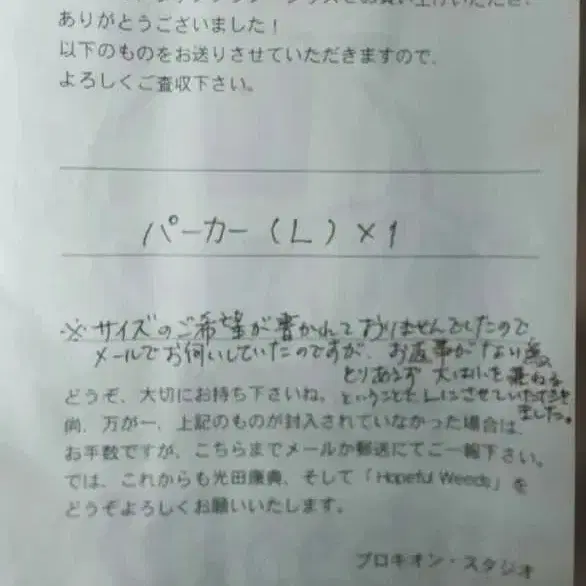 ありがとうございました！
以下のものをお送りさせていただきますので、
よろしくご査収下さい。
パーカー（L）×1
※サイズのご希望が書かれておりませんでしたので
メールでお伺いしていたのですが、お返事がない為、
とりあえず 大は小を兼ねる
ということでLにさせていただき
ました。
どうぞ、大切にお持ち下さいね。
尚、万が一、上記のものが封入されていなかった場合は、
お手数ですが、こちらまでメールか郵送にてご一報下さい。
では、これからも光田康典、そして「Hopeful Weeds」を
どうぞよろしくお願いいたします。
プロキオン・スタジオ